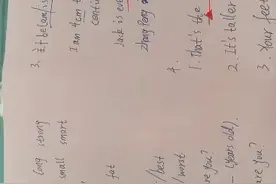 long strong
small smart
fat
/best
/worst
re you?
- (years old).
are you?
3. 主+be(am/is
I am 4cm t
conti
Jack is eve
zhang Peng
4.
1. That's the
2. It's taller
3. Your feet